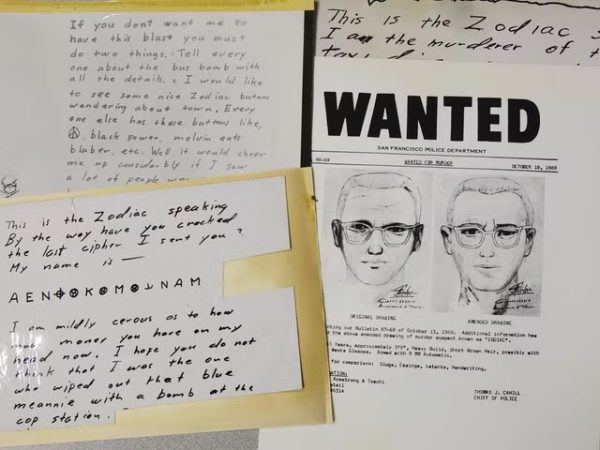 If you dont want me to
have this blast you must
do two things. Tell every
one about the bus bomb with
all the details. I would like
to see some nice Zodiac butons
wandering about town. Every
one else has these buttons like,
☮, black power, melvin eats
blaber, etc. Well it would cheer
me up considerbly if I saw
a lot of people
This is the Zodiac
I am the murderer of the
This is the Zodiac speaking
By the way have you cracked
the last cipher I sent you?
My name is —
AEN⊕⊗K⊗M⊗⅃NAM
I am mildly cerous as to how
much money you have on my
head now. I hope you do not
think that I was the one
who wiped out that blue
meannie with a bomb at the
cop station.
WANTED
SAN FRANCISCO POLICE DEPARTMENT
90-69 WANTED FOR MURDER OCTOBER 18, 1969
ORIGINAL DRAWING AMENDED DRAWING
our Bulletin 87-69 of October 13, 1969. Additional information has
the above amended drawing of murder suspect known as "ZODIAC".
Years, approximately 5'8", Heavy Build, Short Brown Hair, possibly with
Glasses. Armed with 9 MM Automatic.
for comparison: Slugs, Casings, Latents, Handwriting.
Armstrong & Toschi
THOMAS J. CAHILL
CHIEF OF POLICE